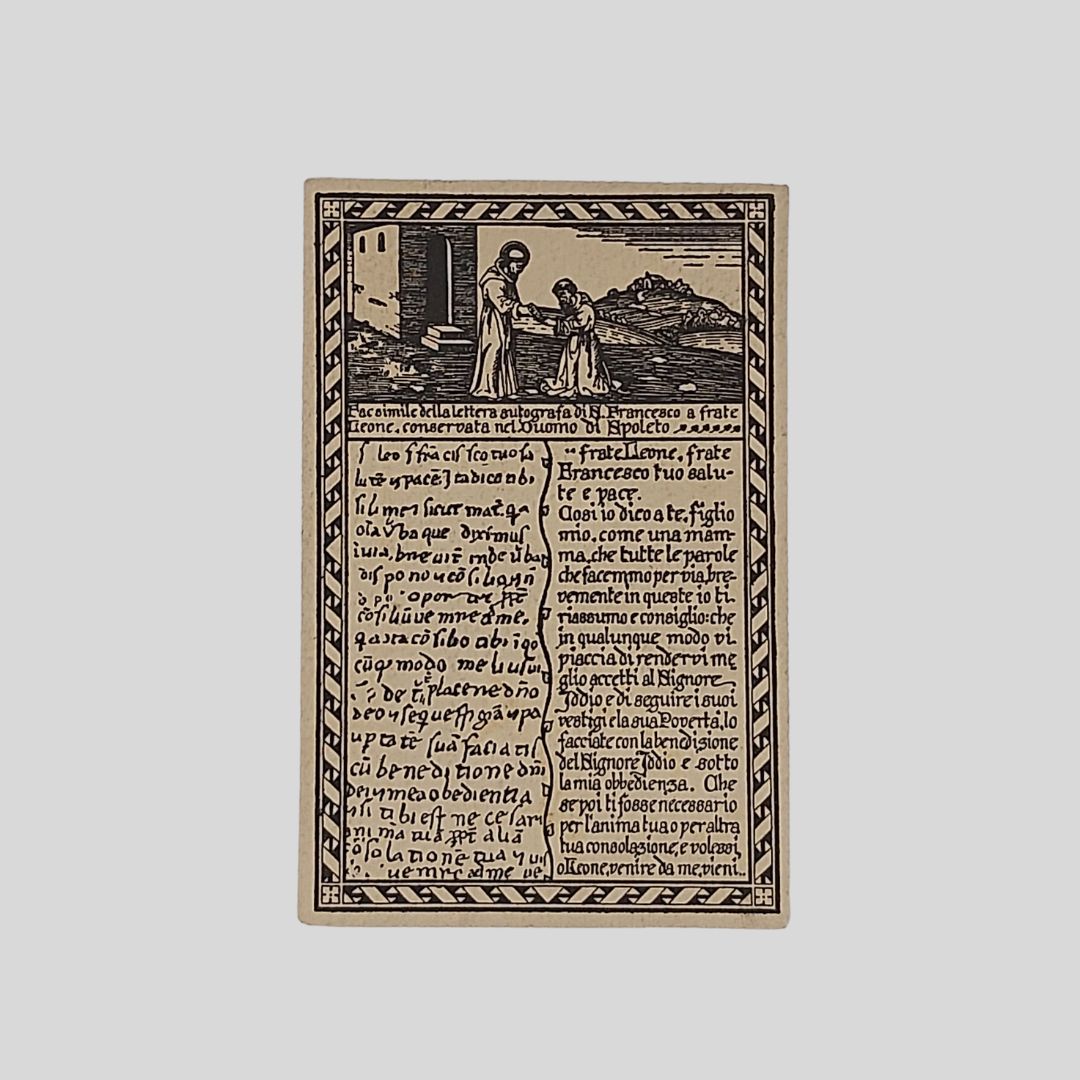 Facsimile della lettera autografa di S. Francesco a frate
Leone, conservata nel Duomo di Spoleto
f leo f frācissco tuo sa
lutē ⁊ pacē J ta dico tibi
fili mei sicut mat̄. qa
v̄ba que diximus
v̄ba
dispono ⁊ cōsiliū
oportet ppt̄
cōsiliū venire ad me,
qa ita cōsilio tibi īqo
cūq modo melius
de t placere dn̄o
deo ⁊ seque
suā faciatis
cū beneditione dn̄i
dei ⁊ mea obedientia
tibi est necesariū
animā tuā ppt̄ aliā
cōsolationē tuā ⁊
venire ad me ve
“frate Leone, frate
Francesco tuo salu-
te e pace.
Cosi io dico a te, figlio
mio, come una mam-
ma, che tutte le parole
che facemmo per via, bre-
vemente in queste io ti
riassumo e consiglio: che
in qualunque modo vi
piaccia di rendervi me
glio accetti al Signore
Iddio e di seguire i suoi
vestigi e la sua Povertà, lo
facciate con la bendisione
del Signore Iddio e sotto
la mia obbedienza. Che
se poi ti fosse necessario
per l'anima tua o per altra
tua consolazione, e volessi,
o Leone, venire da me, vieni..